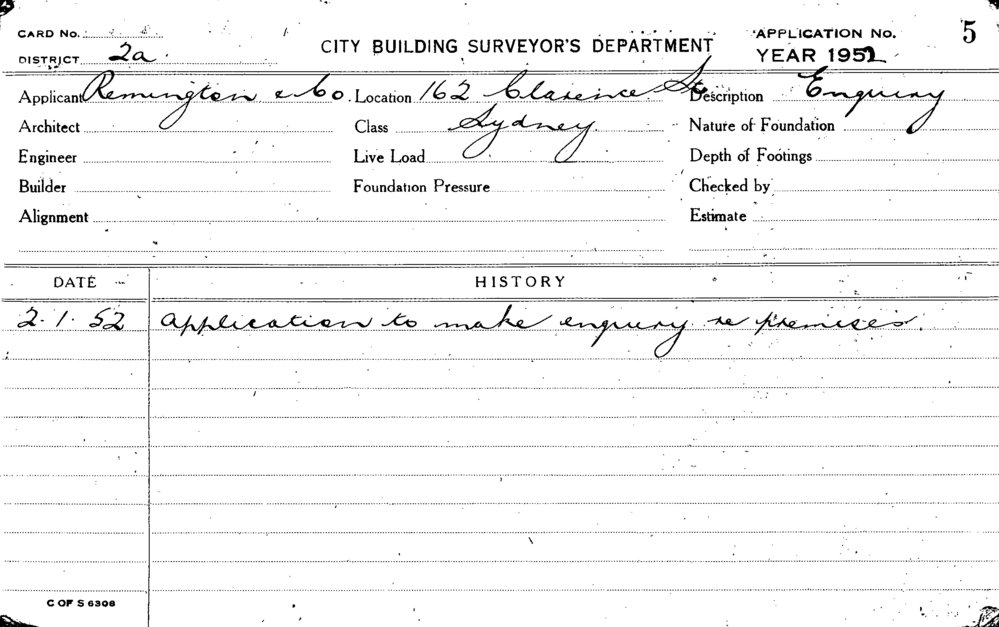 CARD No.
CITY BUILDING SURVEYOR'S DEPARTMENT
APPLICATION No. 5
DISTRICT 2a
YEAR 1952
Applicant Remington & Co. Location 162 Clarence St. Description Enquiry
Architect Class Sydney Nature of Foundation
Engineer Live Load Depth of Footings
Builder Foundation Pressure Checked by
Alignment Estimate
DATE HISTORY
2.1.52 Application to make enquiry re premises.
C OF S 6308